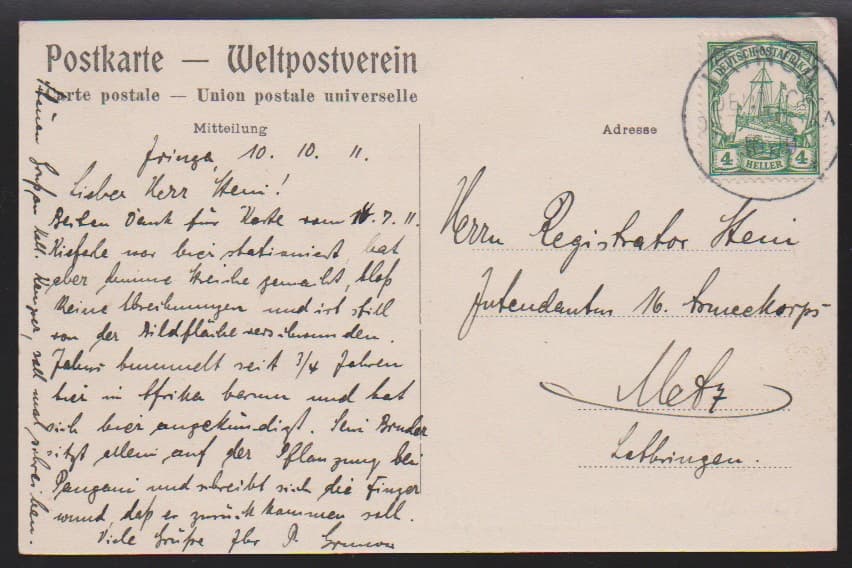 Postkarte — Weltpostverein
Carte postale — Union postale universelle
Mitteilung
Iringa, 10. 10. 11.
Lieber Herr Stein!
Besten Dank für Karte vom 10. 7. 11.
war hier stationiert, hat
aber dumme Streiche gemacht, blos
keine Abrechnungen und ist still
von der Bildfläche verschwunden.
bummelt seit 3/4 Jahren
hier in Afrika herum und hat
sich hier angekündigt. Sein Bruder
sitzt allein auf der Pflanzung bei
Pangani und schreibt sich die Finger
wund, daß er zurückkommen soll.
Viele Grüße Ihr P.
soll mal schreiben.
Adresse
DEUTSCH-OSTAFRIKA
4 HELLER 4
Herrn Registrator Stein
Intendantur 16. Armeekorps
Metz
Lothringen.